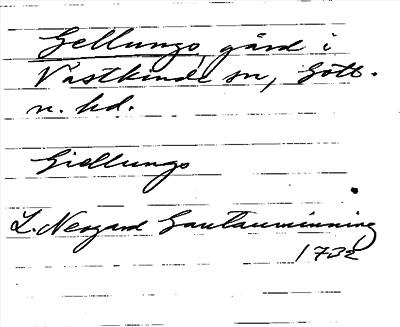 Gellungs, gård i
Västkinde sn, Gotl.
n. hd.
Giellungs
L. Neogard Gautauminning
1732